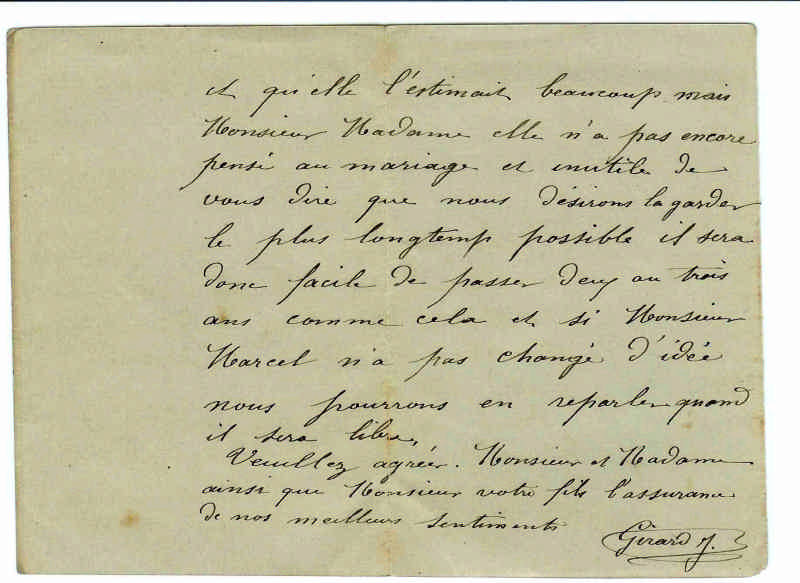 et qu'elle l'estimait beaucoup mais
Monsieur Madame elle n'a pas encore
pensé au mariage et inutile de
vous dire que nous désirons la garder
le plus longtemp possible il sera
donc facile de passer deux ou trois
ans comme cela et si Monsieur
Marcel n'a pas changé d'idée
nous pourrons en reparler quand
il sera libre,
Veuillez agréer. Monsieur et Madame
ainsi que Monsieur votre fils l'assurance
de nos meilleurs sentiments
Gérard J.